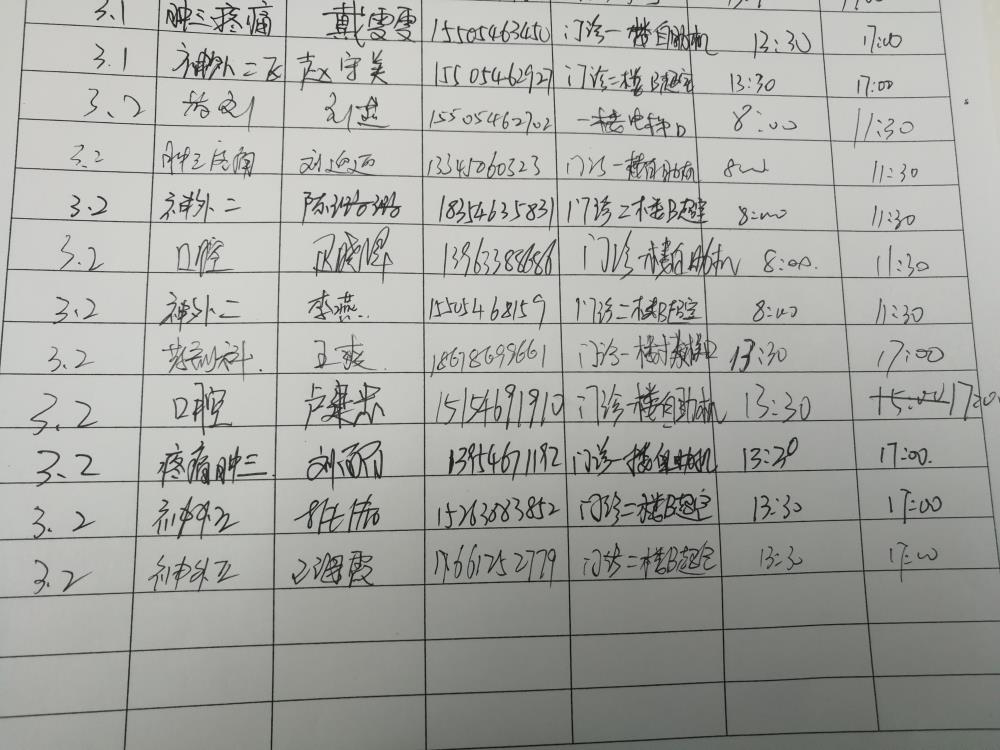 3.1 肿三疼痛 戴雯雯 15505463450 门诊一楼自助机 13:30 17:00
3.1 神外二 赵守美 15505462927 门诊二楼B超室 13:30 17:00
3.2 15505462702 一楼电梯口 8:00 11:30
3.2 肿三疼痛 13345060323 门诊一楼自助机 8:00 11:30
3.2 神外二 陈 18354635831 门诊二楼B超室 8:00 11:30
3.2 口腔 13963388686 门诊一楼自助机 8:00. 11:30
3.2 神外二 李燕 15505468159 门诊二楼B超室 8:00 11:30
3.2 王爽 18678699661 门诊一楼 13:30 17:00
3.2 口腔 卢建忠 15154691910 门诊一楼自助机 13:30 15:00 17:00
3.2 疼痛肿三 刘雨雨 13954671192 门诊一楼自助机 13:30 17:00.
3.2 神外二 15263083852 门诊二楼B超室 13:30 17:00
3.2 神外二 17661252779 门诊二楼B超室 13:30 17:00